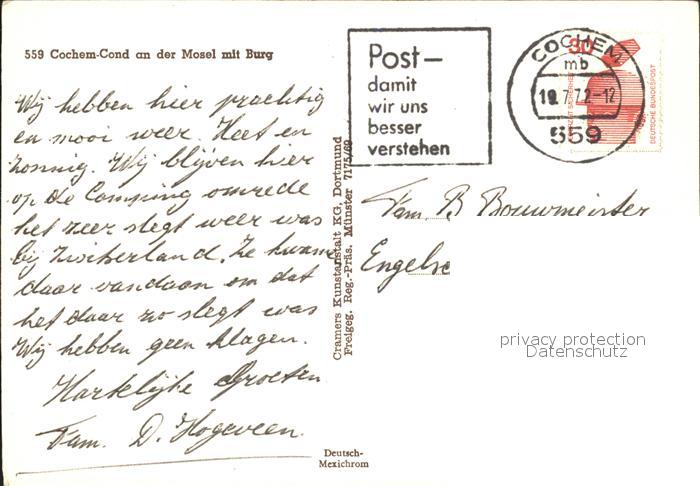 559 Cochem-Cond an der Mosel mit Burg
Wij hebben hier prachtig
en mooi weer. Heet en
zonnig. Wij blijven hier
op de Camping omrede
het zeer slegt weer was
bij Zwitserland. Ze kwamen
daar vandaan om dat
het daar zo slegt was
Wij hebben geen klagen.
Hartelijke Groeten
Fam. D. Hogeveen.
Cramers Kunstanstalt KG, Dortmund
Freigeg. Reg.-Präs. Münster 7175/69
Deutsch-
Mexichrom
Post-
damit
wir uns
besser
verstehen
COCHEM
mb
19.7.72-12
559
30
DEUTSCHE BUNDESPOST
Fam. B. Bouwmeister
Engelse
privacy protection
Datenschutz